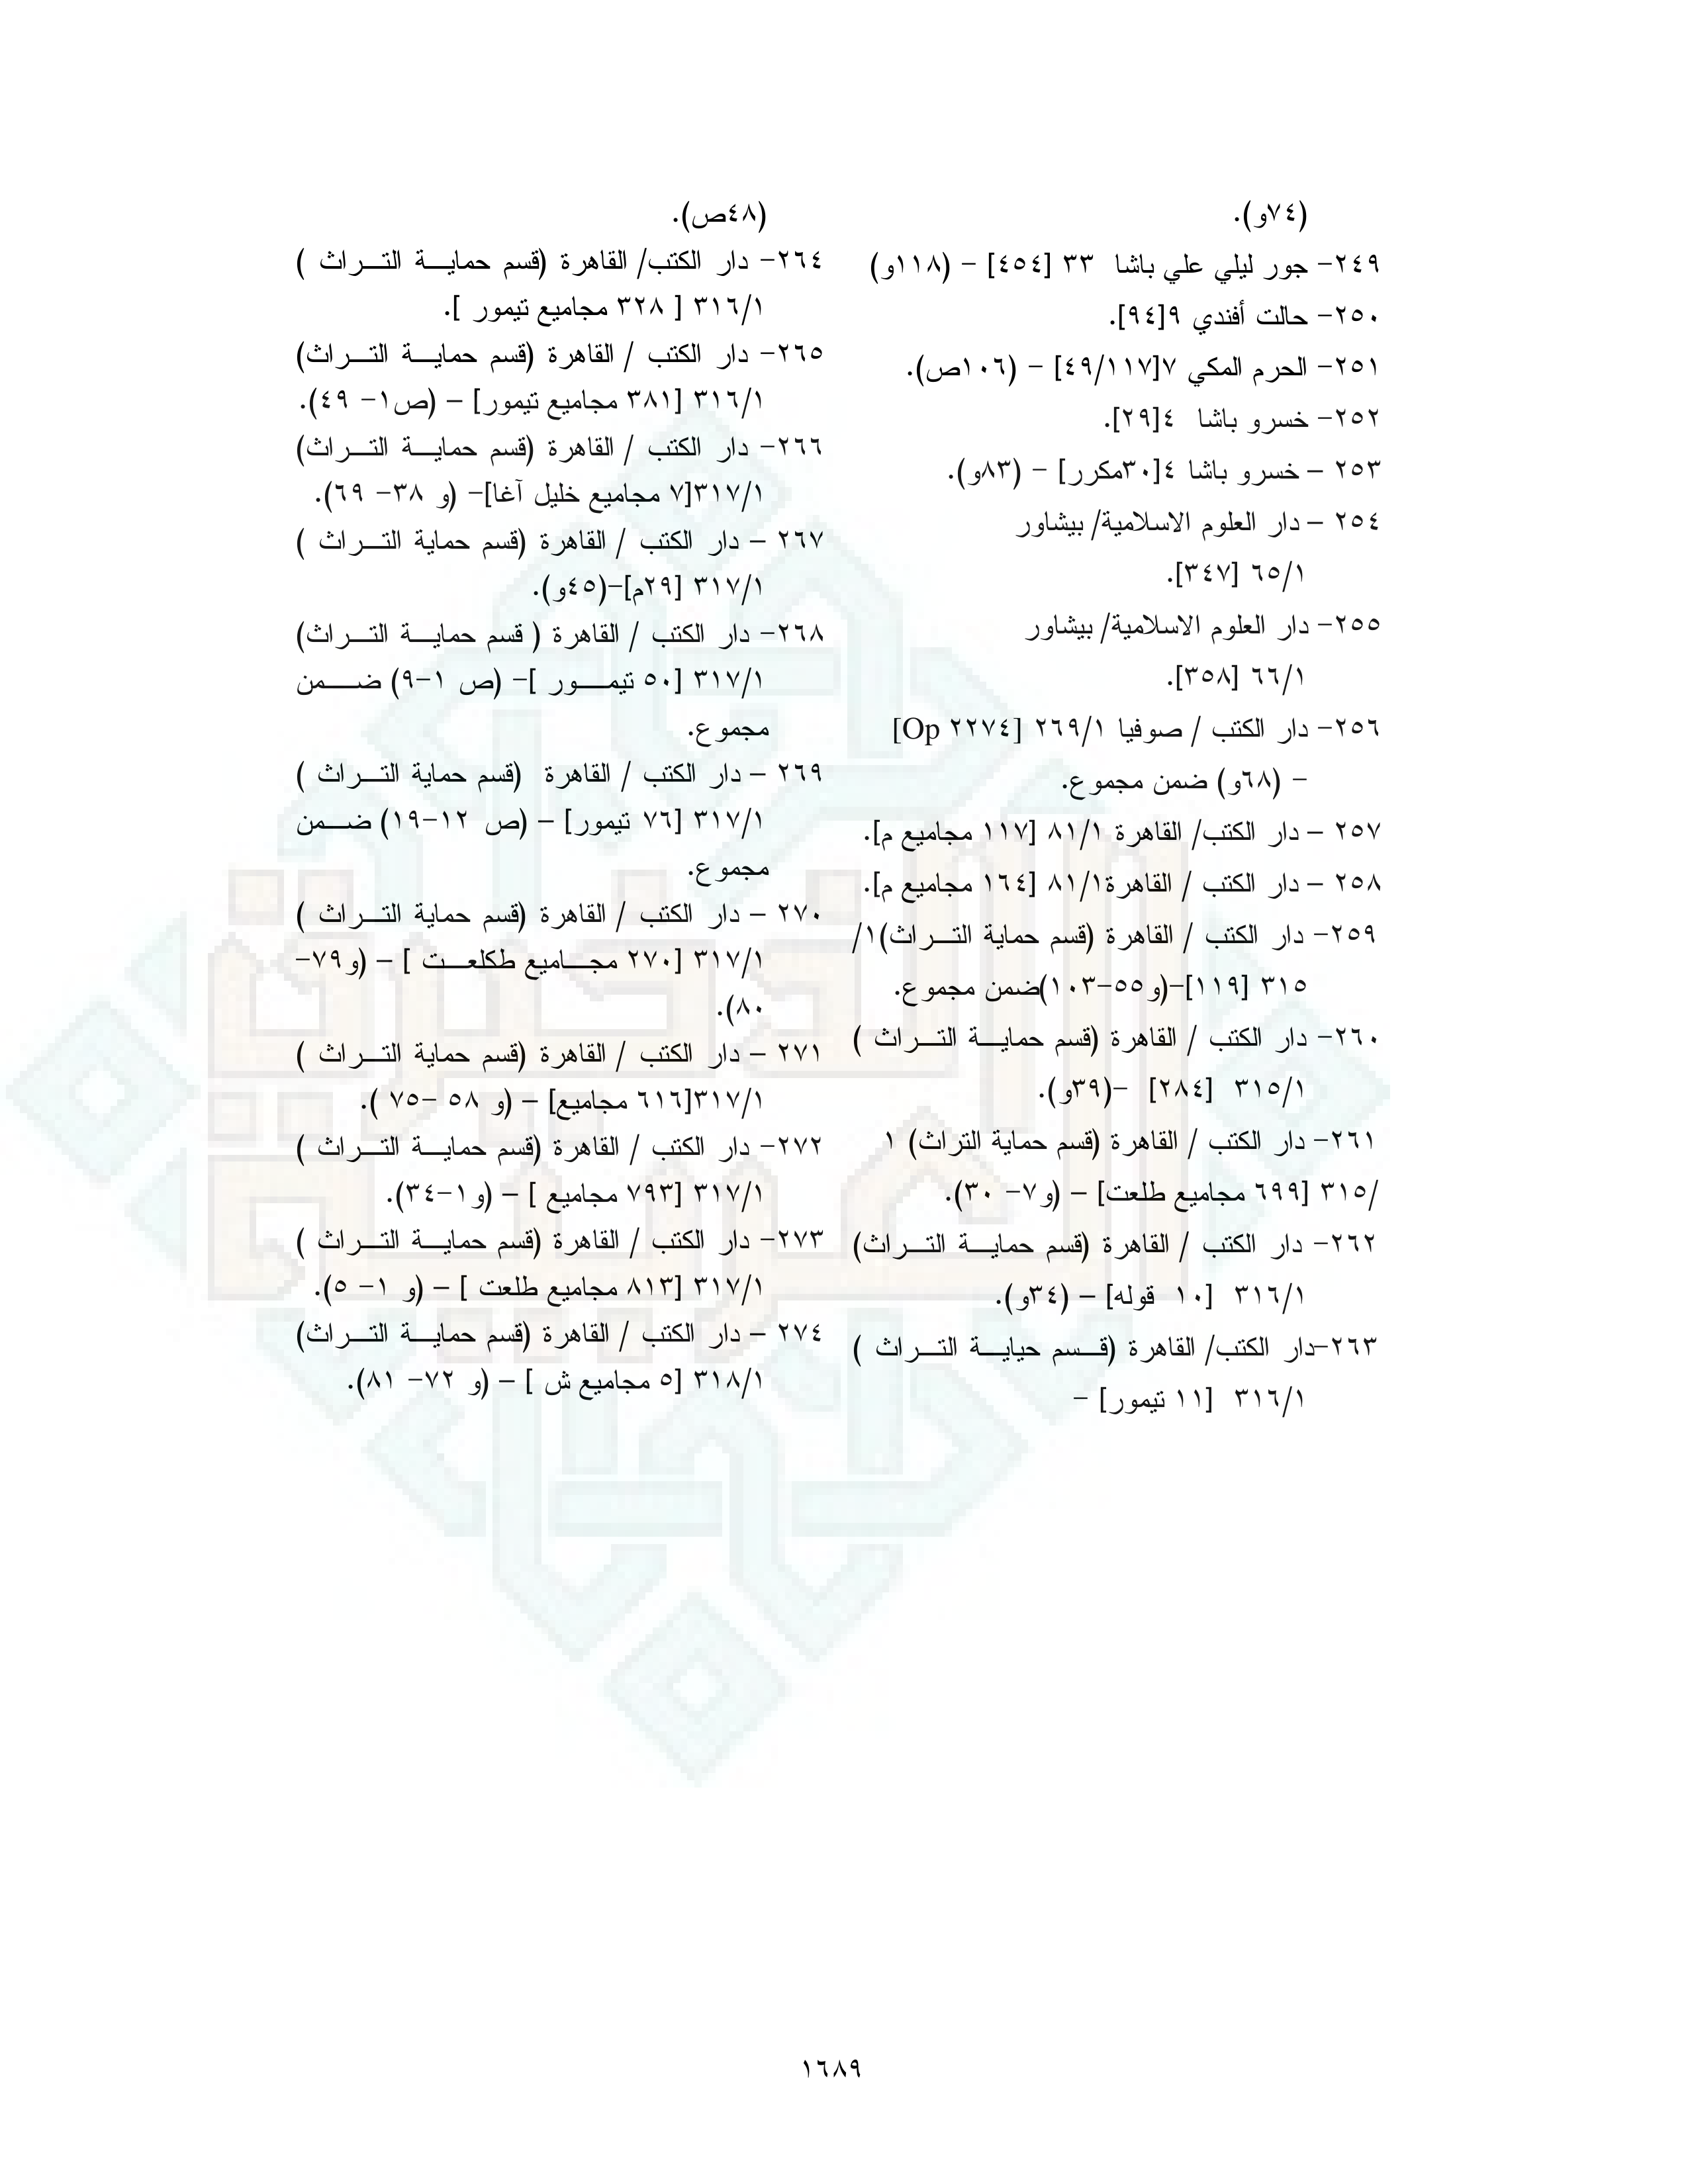 (٧٤و).
٢٤٩- جور ليلي علي باشا ٣٣ [٤٥٤] - (١١٨و)
٢٥٠- حالت أفندي ٩[٩٤].
٢٥١- الحرم المكي ٧[٤٩/١١٧] - (١٠٦ص).
٢٥٢- خسرو باشا ٤[٢٩].
٢٥٣ – خسرو باشا ٤[٣٠مكرر] - (٨٣و).
٢٥٤ – دار العلوم الاسلامية/ بيشاور
٦٥/١ [٣٤٧].
٢٥٥- دار العلوم الاسلامية/ بيشاور
٦٦/١ [٣٥٨].
٢٥٦- دار الكتب / صوفيا ٢٦٩/١ [Op ٢٢٧٤]
- (٦٨و) ضمن مجموع.
٢٥٧ – دار الكتب/ القاهرة ٨١/١ [١١٧ مجاميع م].
٢٥٨ – دار الكتب / القاهرة٨١/١ [١٦٤ مجاميع م].
٢٥٩- دار الكتب / القاهرة (قسم حماية التـــراث)١/
٣١٥ [١١٩]-(و٥٥-١٠٣)ضمن مجموع.
٢٦٠- دار الكتب / القاهرة (قسم حمايـــة التـــراث )
٣١٥/١ [٢٨٤] -(٣٩و).
٢٦١- دار الكتب / القاهرة (قسم حماية التراث) ١
/٣١٥ [٦٩٩ مجاميع طلعت] – (و٧- ٣٠).
٢٦٢- دار الكتب / القاهرة (قسم حمايـــة التـــراث)
٣١٦/١ [١٠ قوله] – (٣٤و).
٢٦٣-دار الكتب/ القاهرة (قـــسم حيايـــة التـــراث )
٣١٦/١ [١١ تيمور] -
(٤٨ص).
٢٦٤- دار الكتب/ القاهرة (قسم حمايـــة التـــراث )
٣١٦/١ [ ٣٢٨ مجاميع تيمور ].
٢٦٥- دار الكتب / القاهرة (قسم حمايـــة التـــراث)
٣١٦/١ [٣٨١ مجاميع تيمور] – (ص١- ٤٩).
٢٦٦- دار الكتب / القاهرة (قسم حمايـــة التـــراث)
٣١٧/١[٧ مجاميع خليل آغا]- (و ٣٨- ٦٩).
٢٦٧ – دار الكتب / القاهرة (قسم حماية التـــراث )
٣١٧/١ [٢٩م]-(٤٥و).
٢٦٨- دار الكتب / القاهرة ( قسم حمايـــة التـــراث)
٣١٧/١ [٥٠ تيمـــور ]- (ص ١-٩) ضـــمن
مجموع.
٢٦٩ – دار الكتب / القاهرة (قسم حماية التـــراث )
٣١٧/١ [٧٦ تيمور] – (ص ١٢-١٩) ضـــمن
مجموع.
٢٧٠ – دار الكتب / القاهرة (قسم حماية التـــراث )
٣١٧/١ [٢٧٠ مجـــاميع طكلعـــت ] – (و٧٩-
٨٠).
٢٧١ – دار الكتب / القاهرة (قسم حماية التـــراث )
٣١٧/١[٦١٦ مجاميع] – (و ٥٨ -٧٥ ).
٢٧٢- دار الكتب / القاهرة (قسم حمايـــة التـــراث )
٣١٧/١ [٧٩٣ مجاميع ] – (و١-٣٤).
٢٧٣- دار الكتب / القاهرة (قسم حمايـــة التـــراث )
٣١٧/١ [٨١٣ مجاميع طلعت ] – (و ١- ٥).
٢٧٤ – دار الكتب / القاهرة (قسم حمايـــة التـــراث)
٣١٨/١ [٥ مجاميع ش ] – (و ٧٢- ٨١).
١٦٨٩